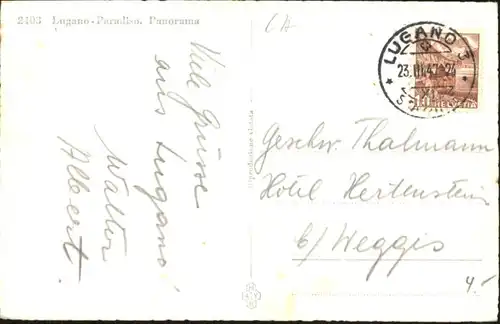 2403 Lugano-Paradiso. Panorama
Viele Grüsse
aus Lugano
Walter
Albert.
LUGANO 3
23.III.47-24
XI
10 HELVETIA
Geschw. Thalmann
Hotel Hertenstein
b/Weggis
4.-